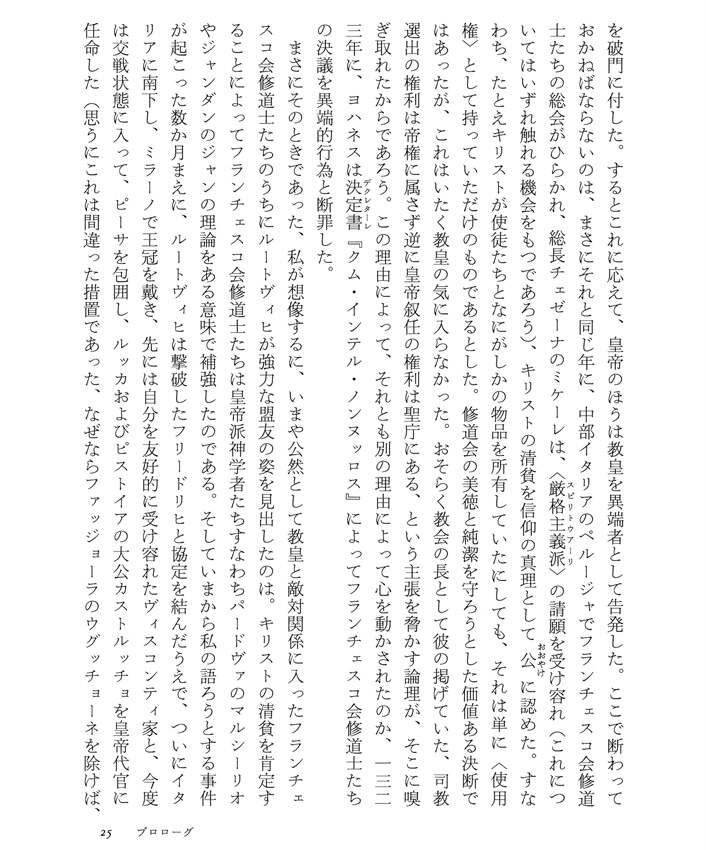 を破門に付した。するとこれに応えて、皇帝のほうは教皇を異端者として告発した。ここで断わって
おかねばならないのは、まさにそれと同じ年に、中部イタリアのペルージャでフランチェスコ会修道
士たちの総会がひらかれ、総長チェゼーナのミケーレは、〈厳格主義派〉の請願を受け容れ（これにつ
スピリトウアーリ
いてはいずれ触れる機会をもつであろう）、キリストの清貧を信仰の真理として公に認めた。すな
おおやけ
わち、たとえキリストが使徒たちとなにがしかの物品を所有していたにしても、それは単に〈使用
権〉として持っていただけのものであるとした。修道会の美徳と純潔を守ろうとした価値ある決断で
はあったが、これはいたく教皇の気に入らなかった。おそらく教会の長として彼の掲げていた、司教
選出の権利は帝権に属さず逆に皇帝叙任の権利は聖庁にある、という主張を脅かす論理が、そこに嗅
ぎ取れたからであろう。この理由によって、それとも別の理由によって心を動かされたのか、一三二
三年に、ヨハネスは決定書『クム・インテル・ノンヌッロス』によってフランチェスコ会修道士たち
デクレターレ
の決議を異端的行為と断罪した。
まさにそのときであった、私が想像するに、いまや公然として教皇と敵対関係に入ったフランチェ
スコ会修道士たちのうちにルートヴィヒが強力な盟友の姿を見出したのは。キリストの清貧を肯定す
ることによってフランチェスコ会修道士たちは皇帝派神学者たちすなわちパードヴァのマルシーリオ
やジャンダンのジャンの理論をある意味で補強したのである。そしていまから私の語ろうとする事件
が起こった数か月まえに、ルートヴィヒは撃破したフリードリヒと協定を結んだうえで、ついにイタ
リアに南下し、ミラーノで王冠を戴き、先には自分を友好的に受け容れたヴィスコンティ家と、今度
は交戦状態に入って、ピーサを包囲し、ルッカおよびピストイアの大公カストルッチョを皇帝代官に
任命した（思うにこれは間違った措置であった、なぜならファッジョーラのウグッチョーネを除けば、
25 プロローグ